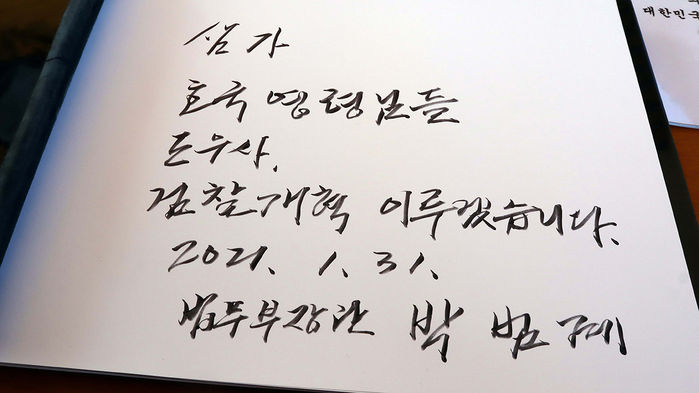 삼가
호국영령님들
도우사.
검찰개혁 이루겠습니다.
2021. 1. 31.
법무부장관 박범계
대한민국